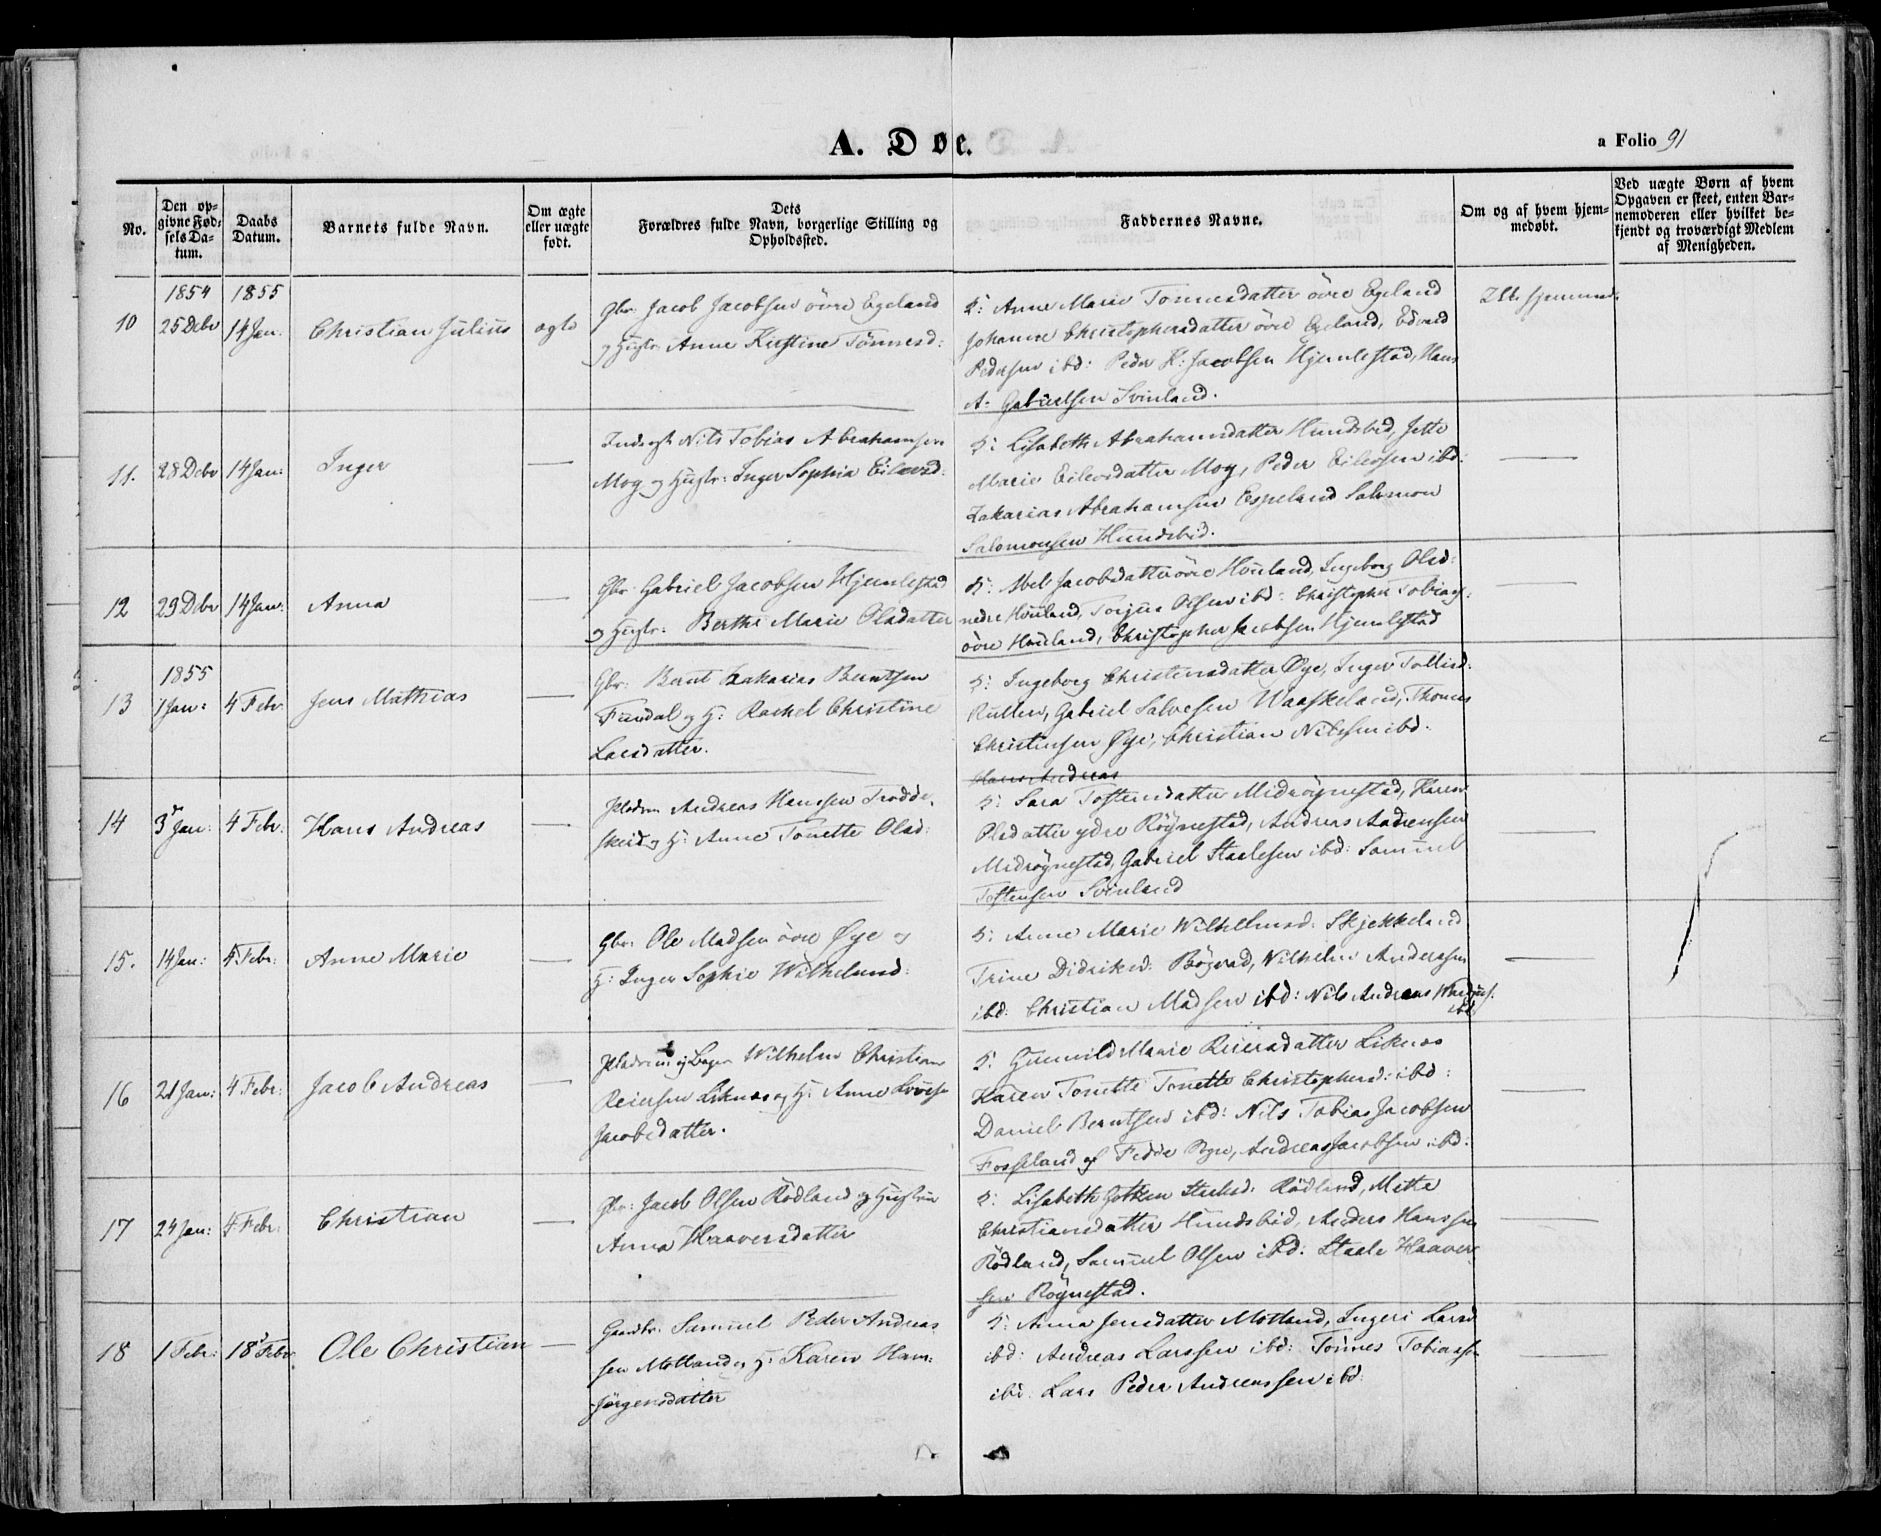 A. Døe.
a Folio 91
No.
Den op-
givne Fød-
sels Da-
tum.
Daabs
Datum.
Barnets fulde Navn.
Om ægte
eller uægte
født.
Dets
Forældres fulde Navn, borgerlige Stilling og
Opholdssted.
Faddernes Navne.
Om og af hvem hjem-
medøbt.
Ved uægte Børn af hvem
Opgaven er skeet, enten Bar-
nemoderen eller hvilket be-
kjendt og troværdigt Medlem
af Menigheden.
10
1854
25 Debr
1855
14 Jan:
Christian Julius
ægte
Gbr: Jacob Jacobsen övre Egeland
og Hustr: Anne Kirstine Tönnesd:
F: Anne Marie Tönnesdatter övre Egeland
Johanne Christophersdatter övre Egeland, Edvard
Pedersen ibd: Peder K: Jacobsen Hjemlestad, Hans
A. Gabrielsen Svinland.
Ikke hjemmed.
11.
28 Debr
14 Jan:
Inger
Inds. Nils Tobias Abrahamsen
Moy og Hustr: Inger Sophia Eilevsd:
F: Lisabeth Abrahamsdatter Hundsbed, Jette
Marie Eilevsdatter Moy, Peder Eilevsen ibd:
Zakarias Abrahamsen Espeland Salomon
Salomonsen Hundsbed.
12
29 Debr
14 Jan:
Anna
Gbr: Gabriel Jacobsen Hjemlestad
og Hustr: Berthe Marie Olsdatter
F: Abel Jacobsdatter övre Houland, Ingeborg Olsd:
nedre Houland, Torjus Olsen ibd: Christopher Tobias:
övre Houland, Christopher Jacobsen Hjemlestad
13
1855
1 Jan:
4 Febr
Jens Mathias
Gbr: Bernt Zakarias Berntsen
Fundal og H: Rachel Christine
Larsdatter.
F: Ingeborg Christensdatter Øye, Inger Tollisd:
Rullen, Gabriel Salvesen Waaskeland, Thomas
Christensen Øye, Christian Nilsen ibd:
Hans Andreas
14
3 Jan:
4 Febr:
Hans Andreas
Pladsm Andreas Hanssen Trodde,
skeid og H: Anne Tonette Olsd:
F: Sara Tostensdatter Midrøgnestad, Karen
Olsdatter ydre Røgnestad, Andreas Andreasen
Midrøgnestad, Gabriel Staalesen ibd: Samuel
Tostensen Svinland
15.
14 Jan:
4 Febr:
Anne Marie
Gbr: Ole Madsen övre Øye og
H: Inger Sophie Wilhelmsd:
F: Anne Marie Wilhelmsd: Skjekkeland
Trine Didriksd: Bögvad, Wilhelm Anderssen
ibd: Christian Madsen ibd: Nils Andreas
ibd
16
21 Jan:
4 Febr:
Jacob Andreas
Pladsm og Wilhelm Christian
Reiersen Liknes og H: Anne Lovise
Jacobsdatter.
F: Gunnild Marie Reiersdatter Liknes
Karen Tonette Tonette Christophersd: ibd:
Daniel Berntsen ibd: Nils Tobias Jacobsen
Fosseland af Fedde Sogn, Andreas Jacobsen ibd:
17
24 Jan:
4 Febr:
Christian
Gbr: Jacob Olsen Rödland og Hustrue
Anna Haaversdatter
F: Lisabeth Staalesd: Rödland, Mette
Christiansdatter Hundsbed, Anders Hanssen
Rödland, Samuel Olsen ibd: Staale Haaver-
sen Røgnestad.
18
1 Febr:
18 Febr
Ole Christian
Gaardbr: Samuel Peder Andreas
sen Motland og H: Karen Hans:
Jörgensdatter
F: Anna Jensdatter Motland, Ingeri Larsd
ibd: Andreas Larssen ibd: Tönnes Tobiassen
ibd: Lars Peder Andreassen ibd: